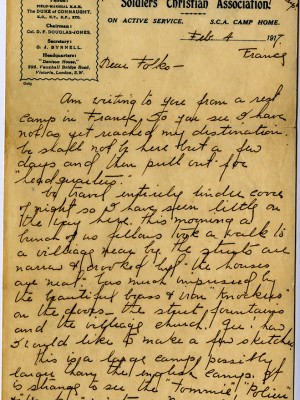 Soldiers Christian Association.
FIELD-MARSHAL H.R.H.
THE DUKE OF CONNAUGHT,
K.G., K.T., K.P., ETC.
Chairman:
Col. D. F. DOUGLAS-JONES.
Secretary:
G. A. BYRNELL.
Headquarters:
"Denison House",
296, Vauxhall Bridge Road,
Victoria, London, S.W.
ON ACTIVE SERVICE. S.C.A. CAMP HOME.
Feb. 4 1917.
France
Dear Folks—
Am writing to you from a rest
camp in France, So you see I have
not as yet reached my destination.
We shall not be here but a few
days and then pull out for
"headquarters."
We travel entirely under cover
of night so I have seen little on
the way here, this morning a
bunch of us fellows took a walk to
a village near by the streets are
narrow & crooked but the houses
are neat. Was much impressed by
the beautiful brass & iron "Knockers"
on the doors— the street fountains
and the village church. Gee! how
I would like to make a few sketches
This is a large camp, possibly
larger than the English camps. It
is strange to see the "Tommie", "Poilieu"